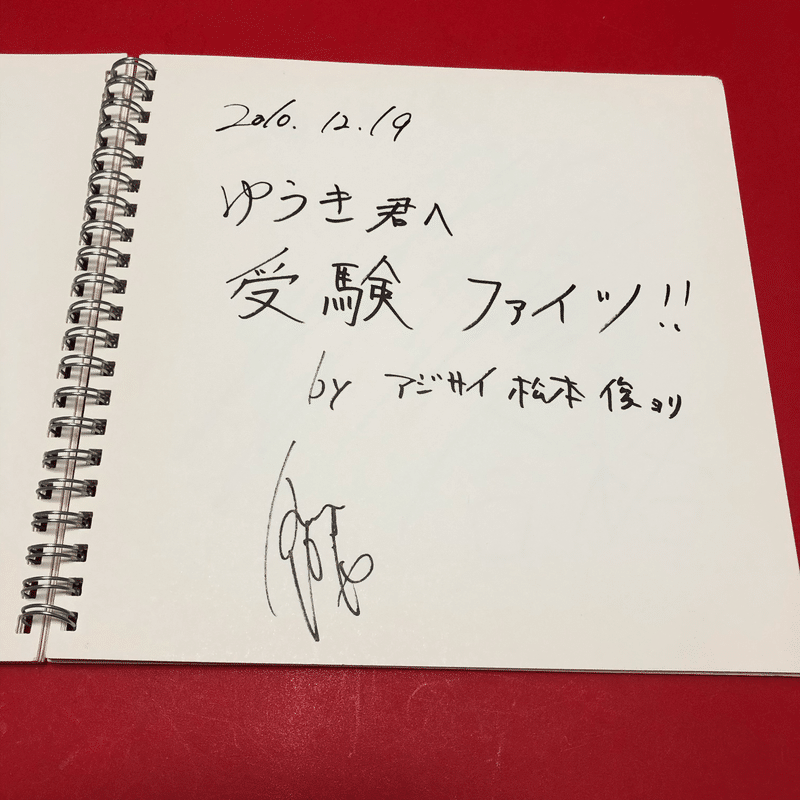 2010.12.19
ゆうき君へ
受験 ファイツ!!
by アジサイ 松本 俊ヨリ